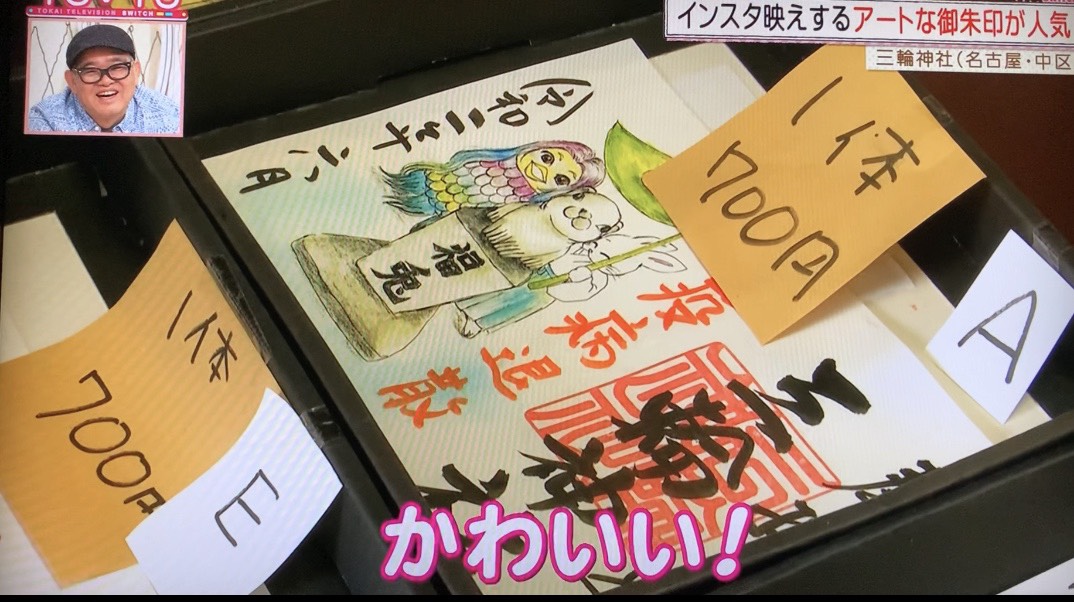 TOKAI TELEVISION SWITCH
インスタ映えするアートな御朱印が人気
三輪神社(名古屋・中区
令和二年六月
福兎
疫病退散
三輪神社
1体
700円
A
1体
700円
E
かわいい!